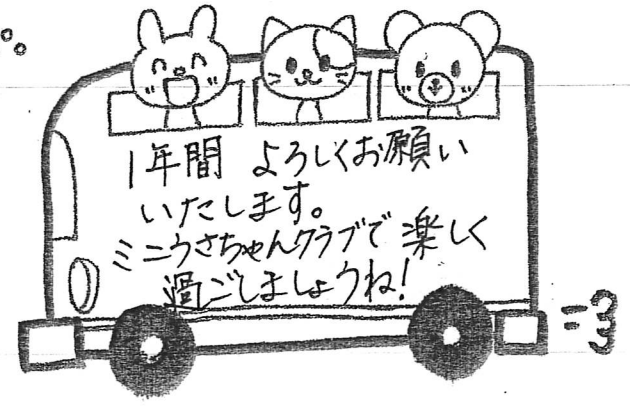 1年間 よろしくお願い
いたします。
ミニうさちゃんクラブで 楽しく
過ごしましょうね!